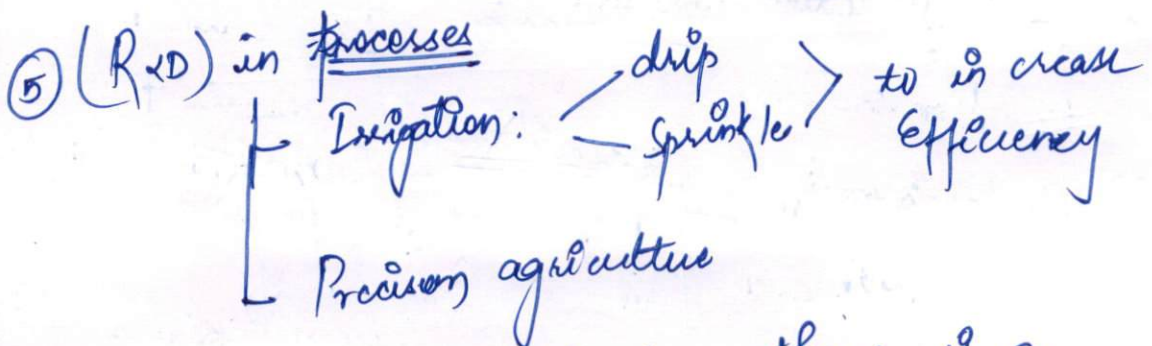 ⑤ (R&D) in processes
Irrigation: drip
sprinkle
to increase
Efficiency
Precision agriculture